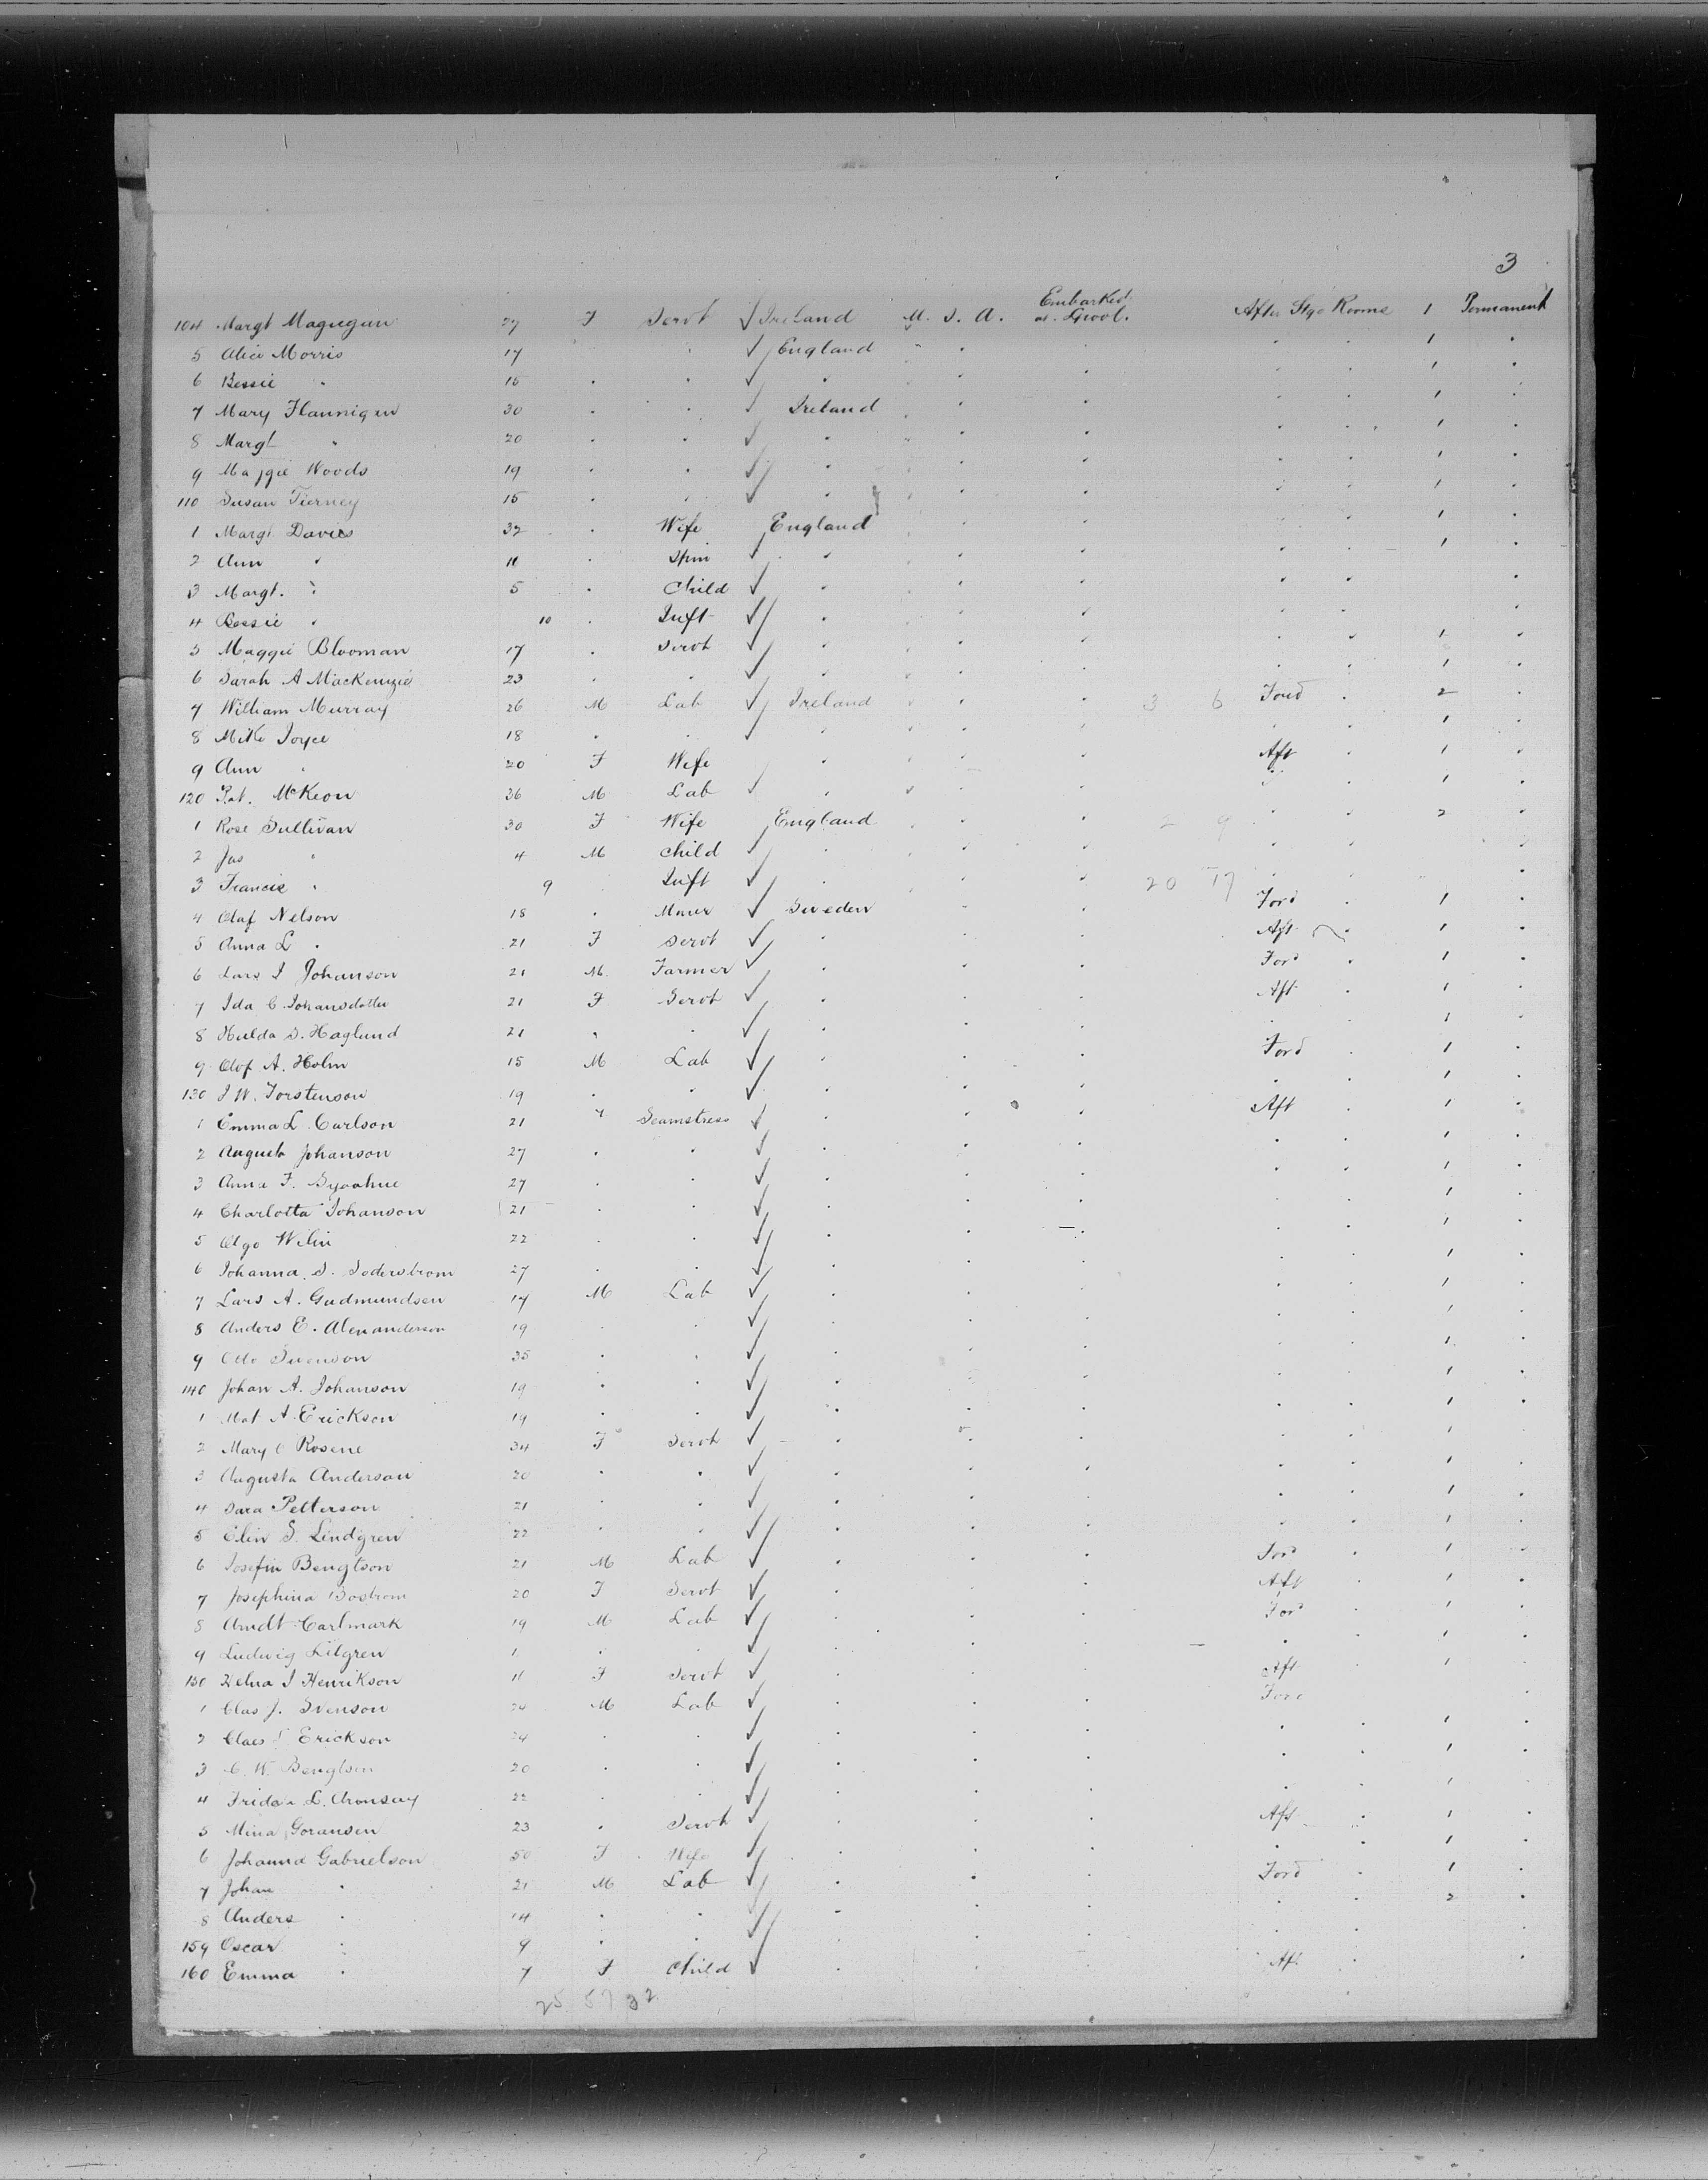 3
104 Margt Magugan 27 F Servt ✓ Ireland U. S. A. Embarked at L'pool. After Stge Rooms 1 Permanent
5 Alice Morris 17 " " ✓ England " " " " " 1 "
6 Bessie " 15 " " ✓ " " " " " " 1 "
7 Mary Flannigan 30 " " ✓ Ireland " " " " " 1 "
8 Margt " 20 " " ✓ " " " " " " 1 "
9 Maggie Woods 19 " " ✓ " " " " " " 1 "
110 Susan Tierney 15 " " ✓ " " " " " " 1 "
1 Margt Davies 32 " Wife England " " " " " 1 "
2 Ann " 11 " Spin ✓ " " " " " 1 "
3 Margt. " 5 " Child ✓ " " " " " " "
4 Bessie " 10 " Inft ✓ " " " " " " "
5 Maggie Blooman 17 " Servt ✓ " " " " " " 1 "
6 Sarah A Mackenzie 23 " " ✓ " " " " " " 1 "
7 William Murray 26 M Lab ✓ Ireland " " " 3 6 Ford " 2 "
8 Mike Joyce 18 " " ✓ " " " " 1
9 Ann " 20 F Wife " " " Aft " 1 "
120 Pat. McKeon 36 M Lab ✓ " " " " " 1 "
1 Rose Sullivan 30 F Wife England " " " 2 9 " " 2 "
2 Jas " 4 M Child ✓ " " " " " " "
3 Francis " 9 Inft ✓ " " " 20 17 " "
4 Olaf Nelson 18 " Miner ✓ Sweden " " Ford " 1 "
5 Anna L " 21 F Servt ✓ " " " Aft " 1 "
6 Lars I Johanson 21 M Farmer ✓ " " " Ford " 1 "
7 Ida C. Johansdotter 21 F Servt ✓ " " " Aft " 1 "
8 Hulda S. Haglund 21 " " ✓ " " " " 1 "
9 Olof A. Holm 15 M Lab ✓ " " " Ford " 1 "
130 J W. Torstenson 19 " " ✓ " " " " " 1 "
1 Emma L. Carlson 21 F Seamstress ✓ " " " Aft " 1 "
2 Augusta Johanson 27 " " ✓ " " " " " 1 "
3 Anna F. 27 " " ✓ " " " " " 1 "
4 Charlotta Johanson 21 " " ✓ " " " " " 1 "
5 Olga Welin 22 " " ✓ " " " " " 1 "
6 Johanna S. Soderstrom 27 " " ✓ " " " " " 1 "
7 Lars A. Gudmundsen 17 M Lab ✓ " " " " " 1 "
8 Anders E. Alexanderson 19 " " ✓ " " " " " 1 "
9 Otto Swenson 35 " " ✓ " " " " " 1 "
140 Johan A. Johanson 19 " " ✓ " " " " " 1 "
1 Mat A. Erickson 19 " " ✓ " " " " " 1 "
2 Mary C Rosene 34 F Servt ✓ " " " " " 1 "
3 Augusta Anderson 20 " " ✓ " " " " " 1 "
4 Sara Petterson 21 " " ✓ " " " " " 1 "
5 Elin S. Lindgren 22 " " ✓ " " " " " 1 "
6 Josefin Bengtson 21 M Lab ✓ " " " Ford " 1 "
7 Josephina Bostrom 20 F Servt ✓ " " " Aft " 1 "
8 Arndt Carlmark 19 M Lab ✓ " " " Ford " 1 "
9 Ludwig Lilgren " " ✓ " " " " 1 "
150 Selma I Henrikson 11 F Servt ✓ " " " Aft 1 "
1 Clas J. Svenson 24 M Lab ✓ " " " Ford "
2 Claes Erickson 24 " " ✓ " " " " " 1 "
3 C. W. Bengtson 20 " " ✓ " " " " " 1 "
4 Frida L. 22 " " ✓ " " " " " 1 "
5 Mina Goransen 23 " Servt ✓ " " " Aft " 1 "
6 Johanna Gabrielson 50 F Wife ✓ " " " " " 1 "
7 Johan " 21 M Lab ✓ " " " Ford " 1 "
8 Anders " 14 " " ✓ " " " " " 2 "
159 Oscar " 9 " " ✓ " " " " " "
160 Emma " 7 F Child ✓ " " " Aft " "
25 57 32